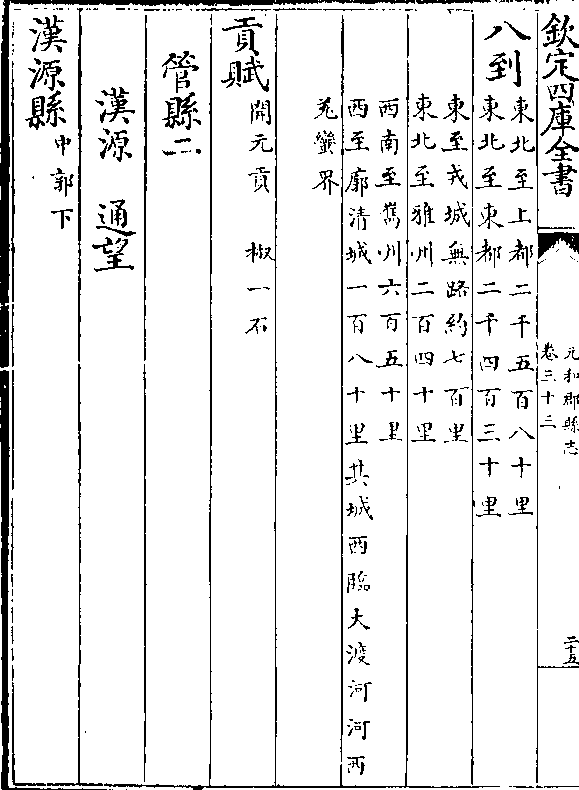 欽定四庫全書
元和郡縣志
卷三十三
二十五
八到
東北至上都二千五百八十里
東北至東都二千四百三十里
東至戎城無路約七百里
東北至雅州二百四十里
西南至巂州六百五十里
西至廓清城一百八十里其城西臨大渡河河西
羌蠻界
貢賦
開元貢 椒一石
管縣二
漢源 通望
漢源縣
中郭下